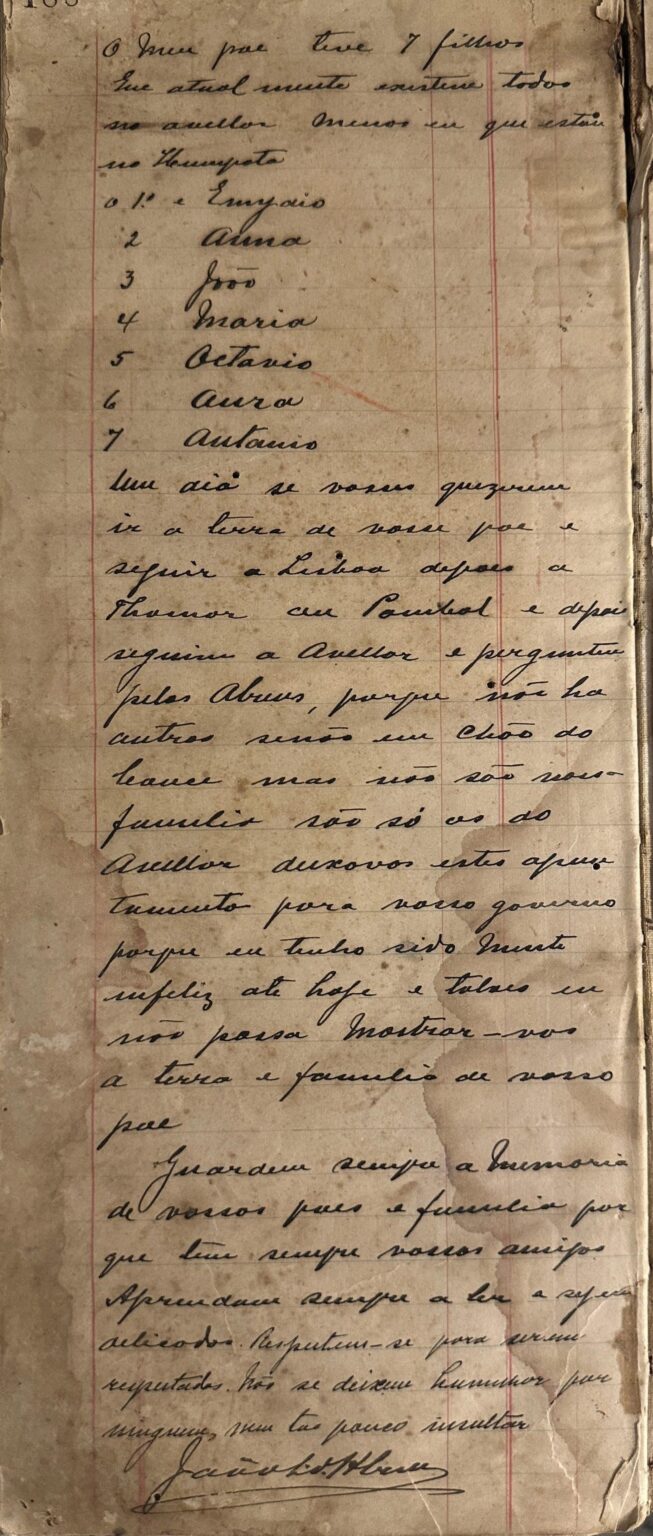 O Meu pae teve 7 filhos
Que atualmente existem todos
no avellar Menos eu que estou
no Humpata
o 1º e Emydio
2 Anna
3 João
4 Maria
5 Octavio
6 Aura
7 Antonio
Um dia se vossus quizerem
ir a terra de vosso pae e
seguir a Lisboa depoes a
Thomar ou Pombal e depois
seguim a Avellar e perguntem
pelos Abreus, porque não ha
outros senão em Chão do
Couce mas não são nossa
familia são só os do
Avellar deixovos estes apon
tamento para vosso governo
porque eu tenho sido Muito
infeliz até hoje e talves eu
não possa Mostrar-vos
a terra e familia de vosso
pae
Guardem sempre a Memoria
de vossos paes e familia por
que têm sempre vossos amigos
Aprendam sempre a ler e sejam
delicados. Respeitem-se para serem
respeitados. Não se deixem humilhar por
ninguem, nem tão pouco insultar
João d'Abreu